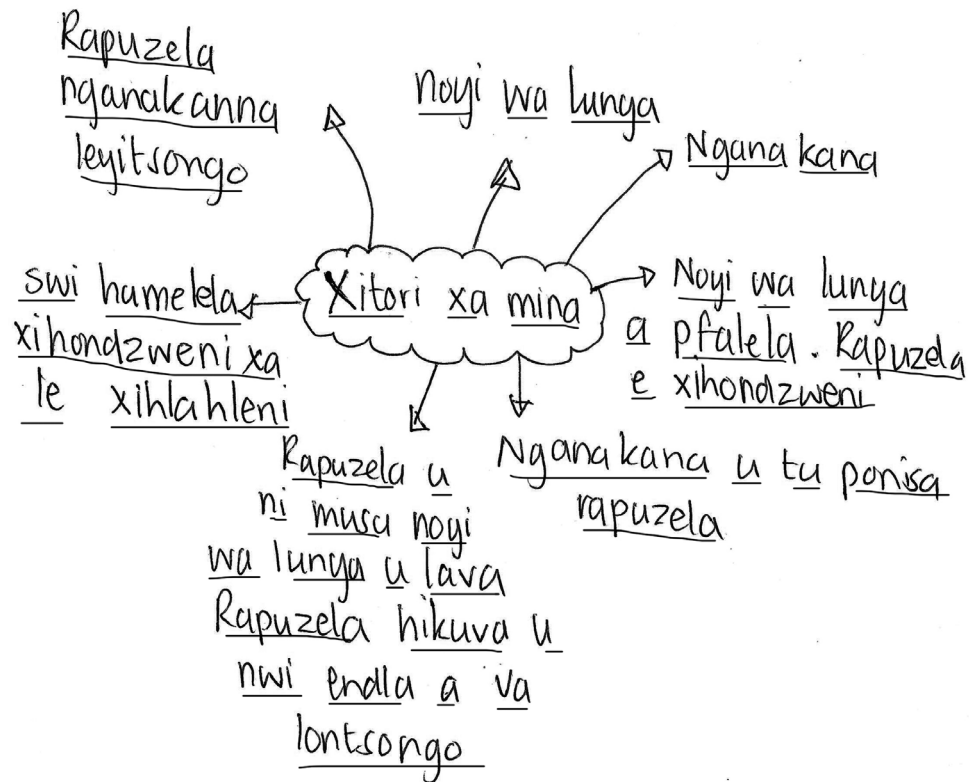 Rapuzela
nganakanna
leyitsongo
noyi wa lunya
Ngana kana
swi hamelela
xihondzweni xa
le xihlahleni
Xitori xa mina
Noyi wa lunya
a pfalela. Rapuzela
e xihondzweni
Rapuzela u
ni musa noyi
wa lunya u lava
Rapuzela hikuva u
nwi endla a va
lontsongo
Nganakana u tu ponisa
rapuzela